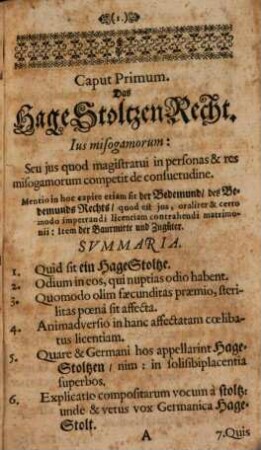 (1.)
Caput Primum.
Das
HageStoltzenRecht.
Ius misogamorum:
Seu jus quod magistratui in personas & res
misogamorum competit de consuetudine.
Mentio in hoc capite etiam fit der Bedemund/ des Be-
demunds Rechts/ quod est jus, oraliter & certo
modo impetrandi licentiam contrahendi matrimo-
nii: Item der Baurmitte und Zugüter.
SVMMARIA.
1. Quid sit ein HageStoltze.
2. Odium in eos, qui nuptias odio habent.
3. Quomodo olim fæcunditas præmio, steri-
litas pœnâ sit affecta.
4. Animadversio in hanc affectatam cœliba-
tus licentiam.
5. Quare & Germani hos appellarint Hage-
Stoltzen/ nim: in solisibiplacentia
superbos.
6. Explicatio compositarum vocum à stoltz:
unde & vetus vox Germanica Hage-
Stolt.
A
7. Quis